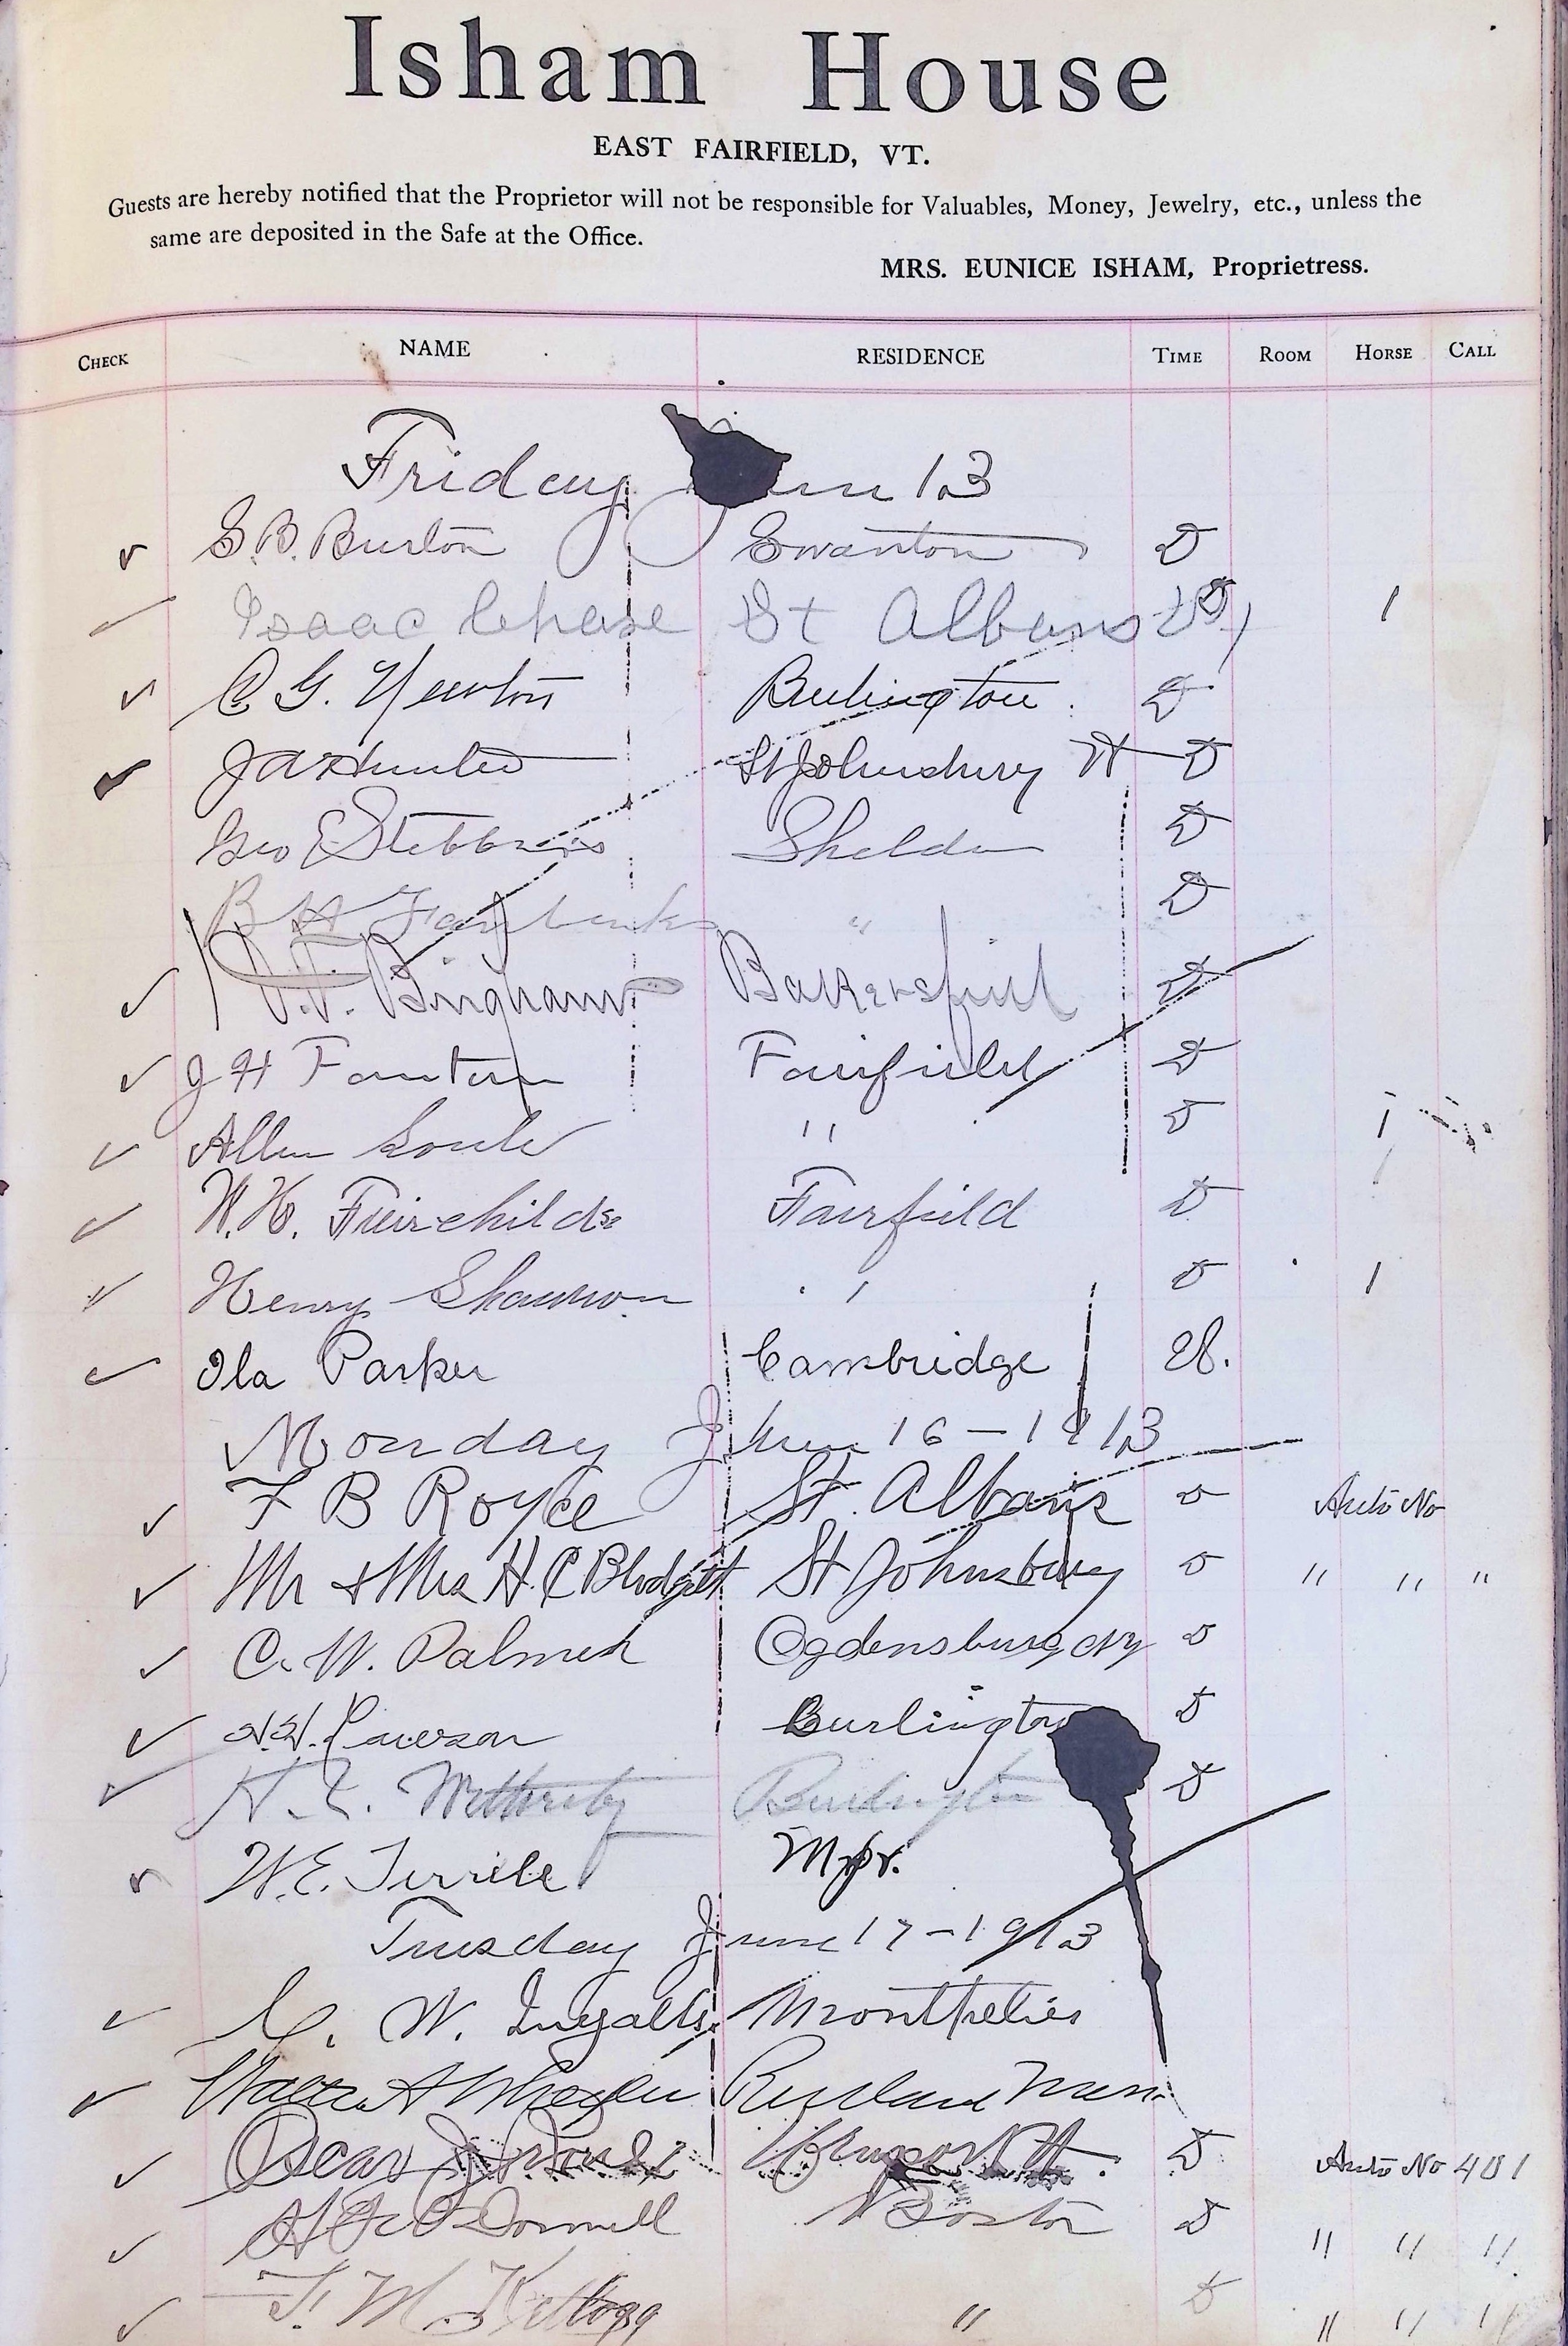 Isham House
EAST FAIRFIELD, VT.
Guests are hereby notified that the Proprietor will not be responsible for Valuables, Money, Jewelry, etc., unless the
same are deposited in the Safe at the Office.
MRS. EUNICE ISHAM, Proprietress.
CHECK NAME RESIDENCE TIME ROOM HORSE CALL
Friday June 13
G. B. Burton Swanton D
Isaac Chase St Albans D 1
C G. Newton Burlington. D
J A Hunter St Johnsbury Vt D
Geo E Stebbins Sheldon D
B H Fairbanks " D
Bingham Bakersfield D
J H Fairfield D
Allen Soule " D 1
W. H. Fairchilds Fairfield D
Henry Shannon " D 1
Ola Parker Cambridge
Monday June 16-1913
F B Royce St. Albans D Auto No
Mr & Mrs H. C Blodgett St Johnsbury D " " "
C. W. Palmer Ogdensburg NY D
Burlington D
Burlington D
W. E. Terrile Mpr.
Tuesday June 17-1913
C. W. Ingalls Montpelier
Walter A Wheeler Rutland
Oscar J Vt. D Auto No 401
O'Donnell Boston D " " "
F. M. Kellogg " D " " "